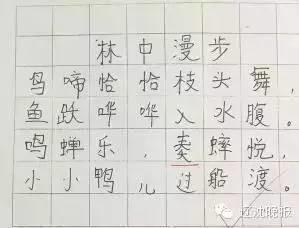 林中漫步
鸟啼恰恰枝头舞，
鱼跃哗哗入水腹。
鸣蝉乐，奏蟀悦，
小小鸭儿过船渡。
辽沈晚报